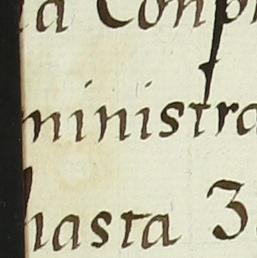 a Conp
ministra
hasta 3